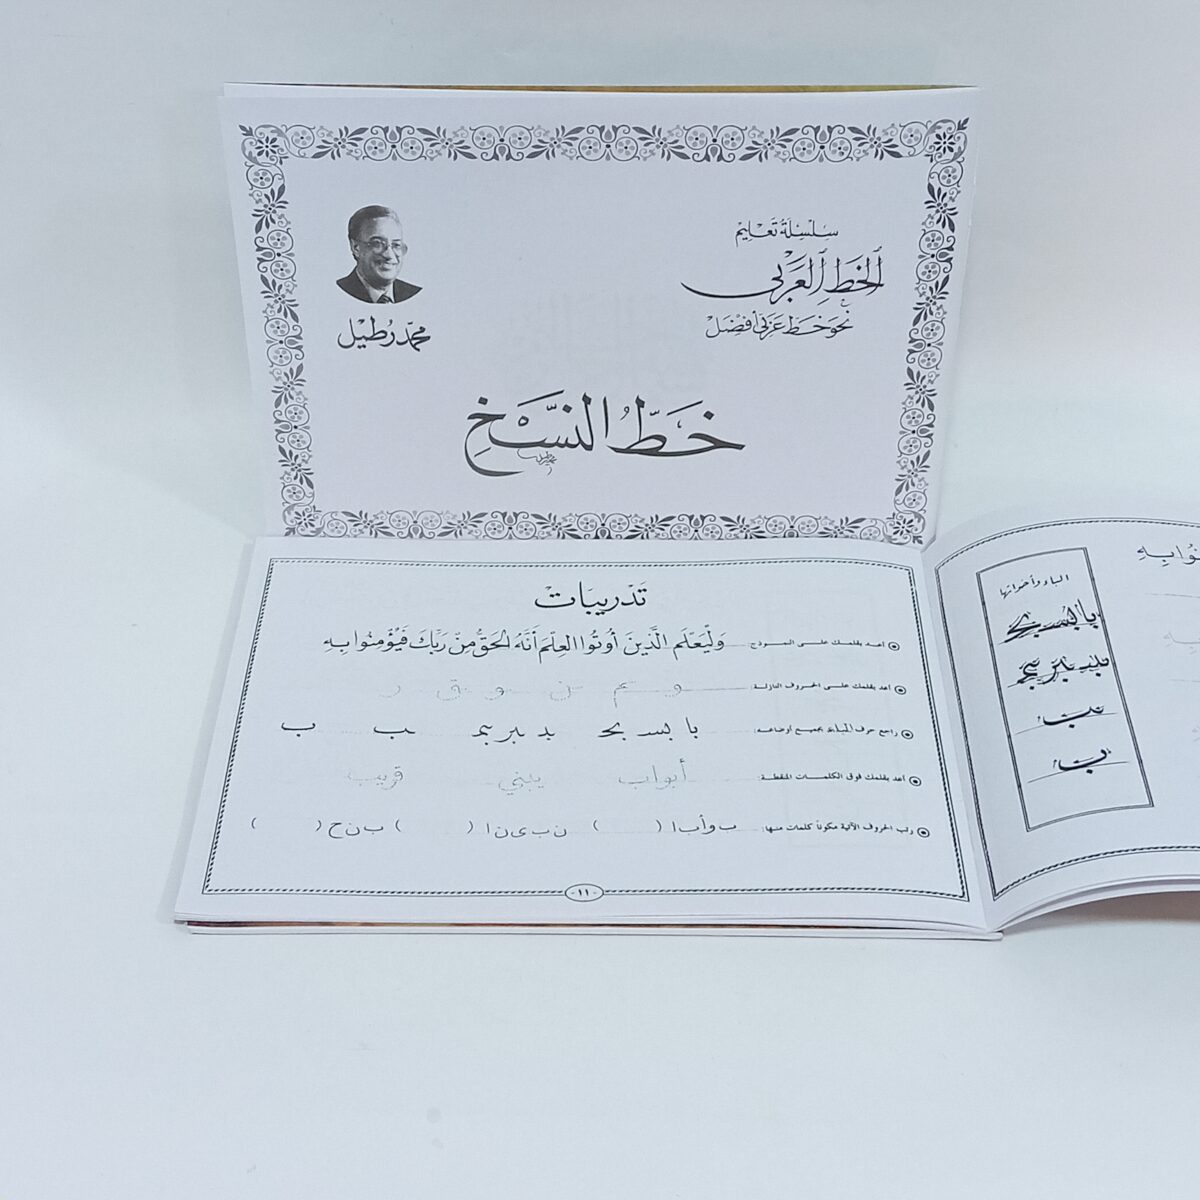 سلسلة تعليم
الخط العربي
نحو خط عربي أفضل
محمد رطيل
خط النسخ
تدريبات
أعد بقلمك على النموذج وَلِيَعْلَمَ الَّذِينَ أُوتُوا العِلْمَ أَنَّهُ الحَقُّ مِنْ رَبِّكَ فَيُؤْمِنُوا بِهِ
أعد بقلمك على الحروف النازلة: و م ن و ق ر
راجع حرف الباء بجميع أوضاعه: با بسـ بحـ بد بر بم ب ب
أعد بقلمك فوق الكلمات المنقطة: أبواب يبني قريب
رتب الحروف الآتية مكوناً كلمات منها: ب و أ ب ا ( ) ن ب ي ن ا ( ) ب ن ح ( )
١١
الباء وأخواتها
با بسـ بحـ
بد بر بم
ب
ب